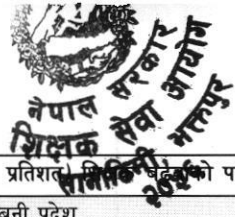 नेपाल सरकार
शिक्षक सेवा आयोग
सानोठिमी, भक्तपुर
प्रतिशत)
प
प्रदेश